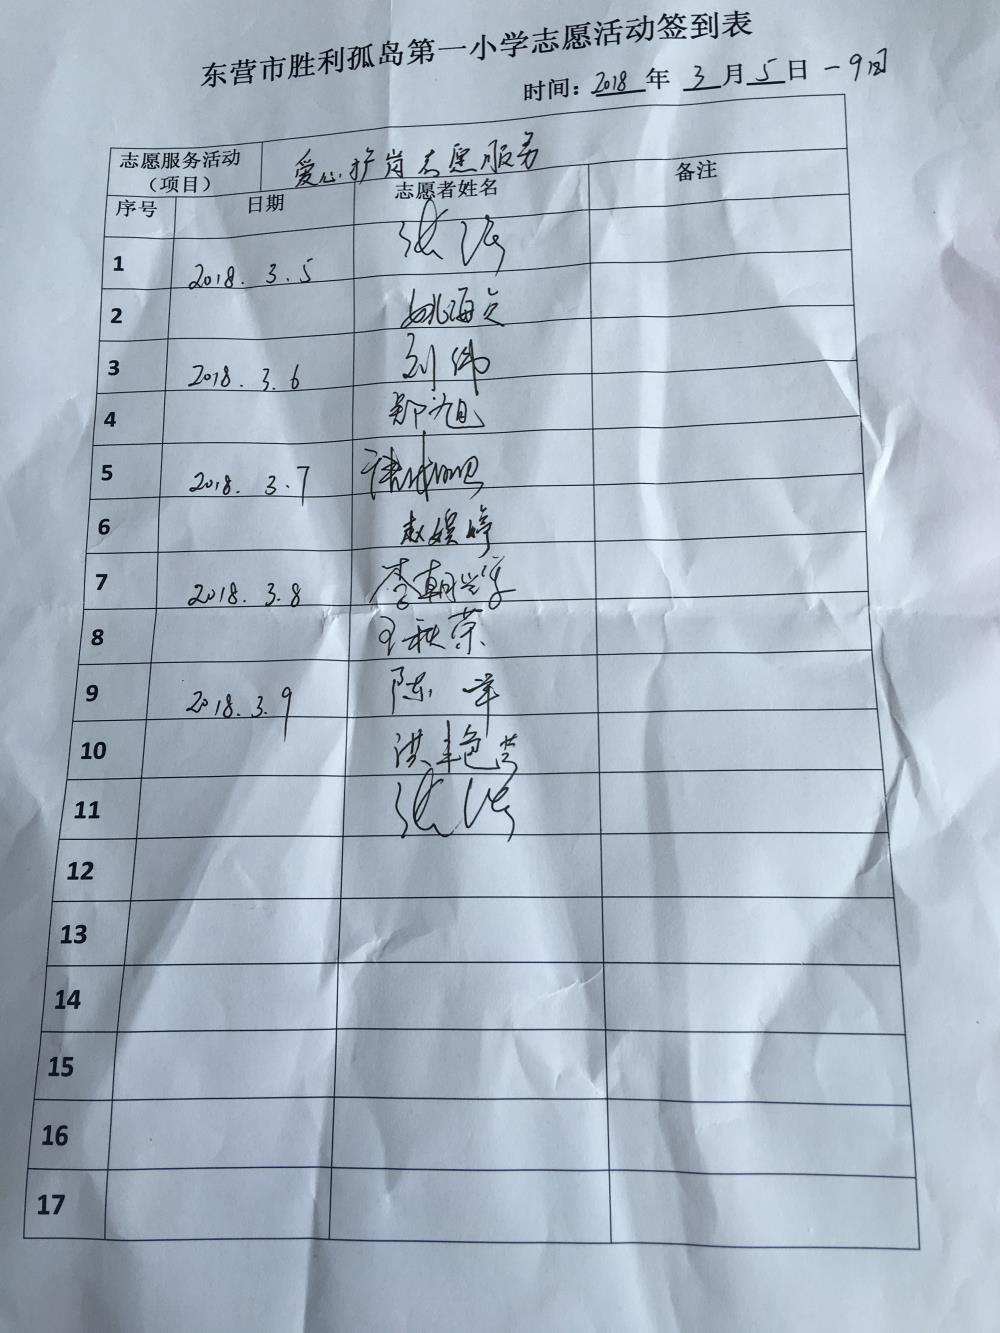 东营市胜利孤岛第一小学志愿活动签到表
时间：2018年3月5日－9日
志愿服务活动（项目） 爱心护岗志愿服务
序号 日期 志愿者姓名 备注
1 2018.3.5 张涛
2 姚海
3 2018.3.6 刘伟
4 郑旭
5 2018.3.7
6 赵娱婷
7 2018.3.8 李朝
8 王秋荣
9 2018.3.9 陈
10 洪艳芳
11 张涛
12
13
14
15
16
17